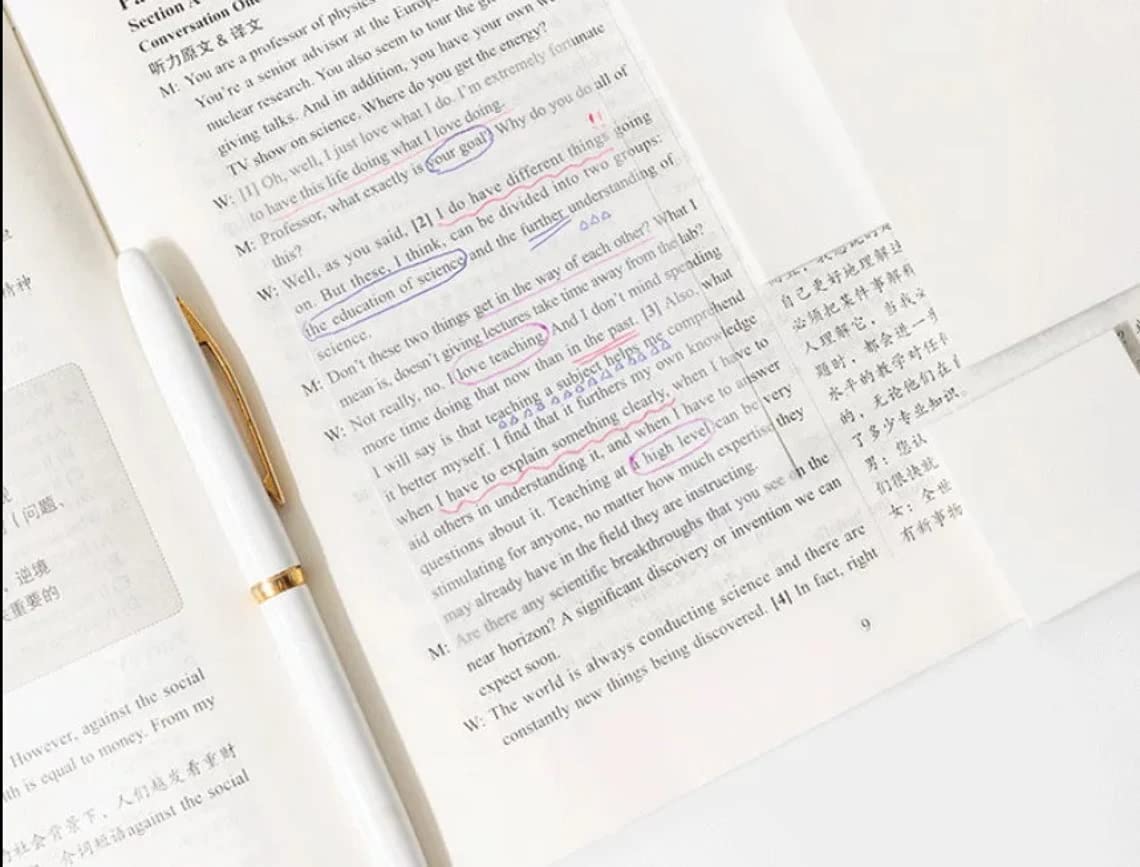 Section A
Conversation One
听力原文 & 译文
M: You are a professor of physics
You're a senior advisor at the Europe
nuclear research. You also seem to tour the
giving talks. And in addition, you have your own
TV show on science. Where do you get the energy?
W: [1] Oh, well, I just love what I do. I'm extremely fortunate
to have this life doing what I love doing.
M: Professor, what exactly is your goal? Why do you do all of
this?
W: Well, as you said, [2] I do have different things going
on. But these, I think, can be divided into two groups:
the education of science and the further understanding of
science.
M: Don't these two things get in the way of each other? What I
mean is, doesn't giving lectures take time away from the lab?
W: Not really, no. I love teaching. And I don't mind spending
more time doing that now than in the past. [3] Also, what
I will say is that teaching a subject helps me comprehend
it better myself. I find that it furthers my own knowledge
when I have to explain something clearly, when I have to
aid others in understanding it, and when I have to answer
questions about it. Teaching at a high level can be very
stimulating for anyone, no matter how much expertise they
may already have in the field they are instructing.
M: Are there any scientific breakthroughs that you see on the
near horizon? A significant discovery or invention we can
expect soon.
W: The world is always conducting science and there are
constantly new things being discovered. [4] In fact, right
9
自己更好地理解
必须把某件事解释
人理解它，当我
题时，都会进一步
水平的教学对任
的，无论他们在
了多少专业知识。
男：您认
们很快就
女：全世
有新事物
精神
（问题、
逆境
重要的
However, against the social
th is equal to money. From my
社会背景下，人们越发看重财
介词短语against the social